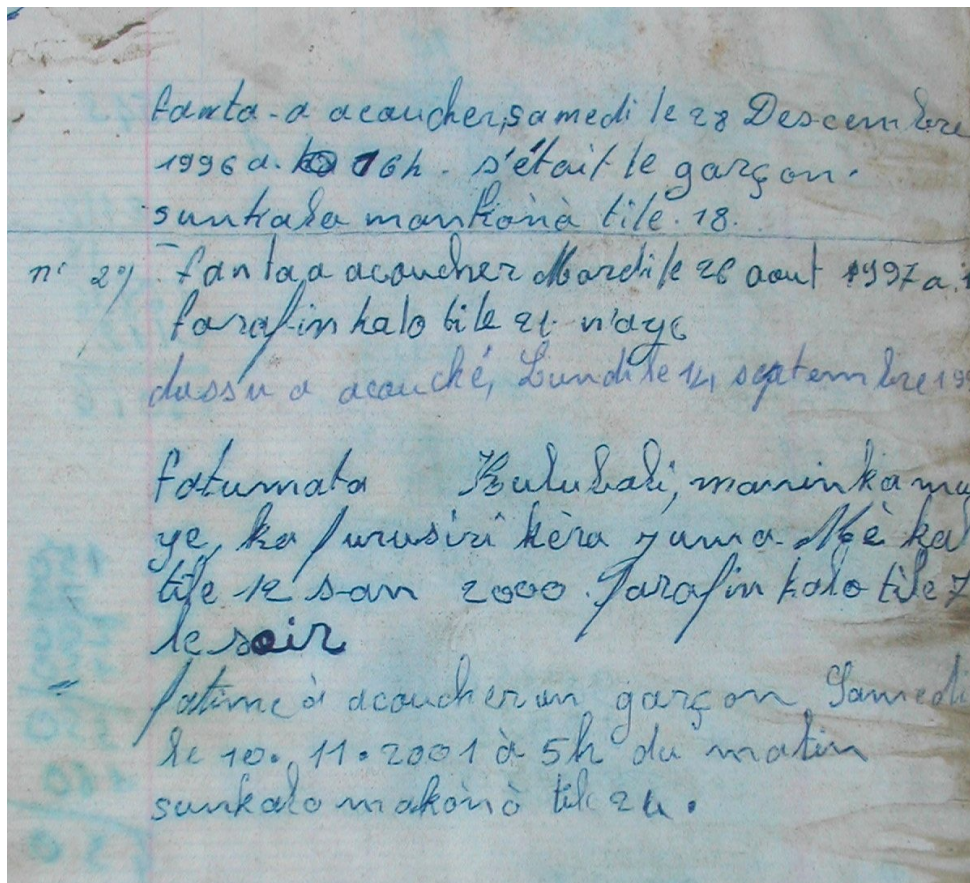 fanta-a acoucher, samedi le 28 Descembre
1996 a. 16h. s'était le garçon.
sunkalo mankònò tile. 18.
n° 2) fanta a acoucher Mardi le 26 aout 1997 a.
farafin kalo tile 21
dassu a acouché, Lundi le 14, septembre 199
fatumata Kulubali, maninka mu
ye, ka furusiri kèra zuma. Mè kal
tile 12 san 2000. farafin kalo tile 7
le soir
fatime à acoucher un garçon Samedi
le 10. 11. 2001 à 5h du matin
sunkalo makònò tile 24.